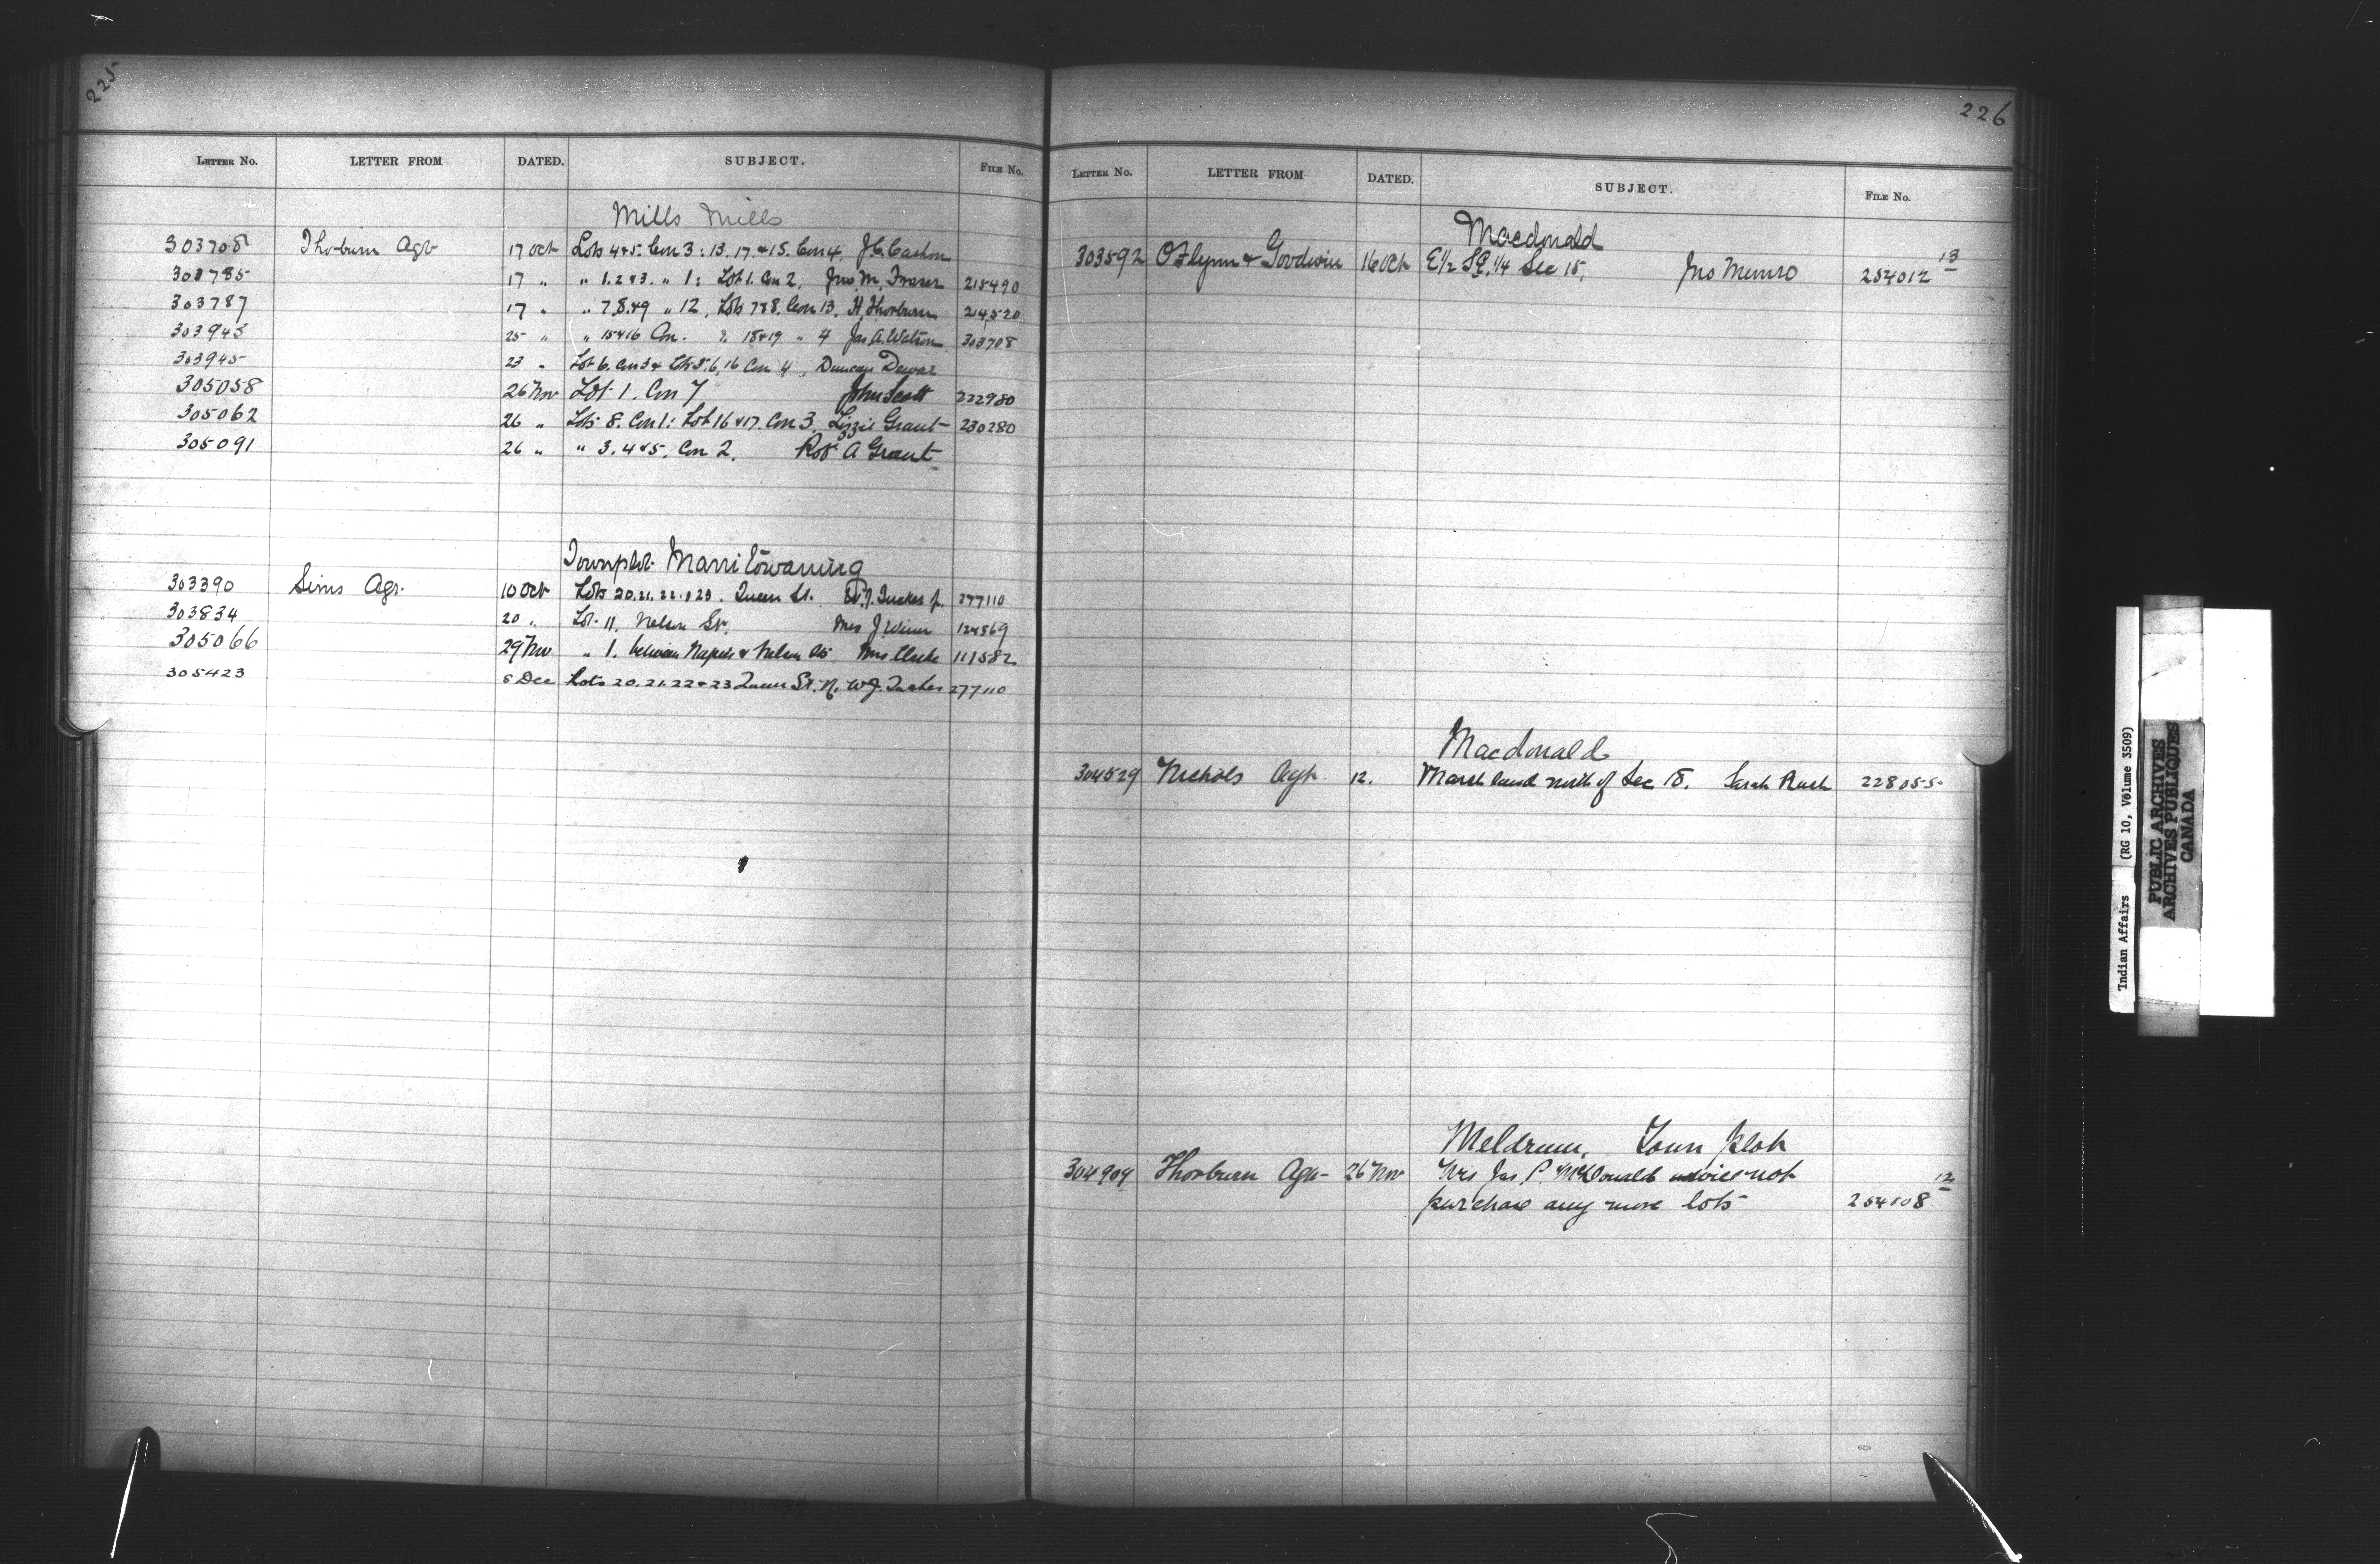 225
LETTER NO. LETTER FROM DATED. SUBJECT. FILE NO.
Mills Mills
303708 Thorburn Agt 17 Oct Lots 4&5. Con 3: 13. 17. & 15. Con 4, J.C.
303785 17 " " 1. 2 & 3. " 1: Lot 1. Con 2, Jno. M. Fraser 215490
303787 17 " " 7.8.&9 " 12, Lots 7&8. Con 13. H. Thorburn 214520
303943 25 " " 15&16 Con. 18&19 " 4 Jas A. Watson 303708
303945 23 " Lot 6. Con 3 & Lts 5.6,16 Con 4, Duncan Dewar
305058 26 Nov Lot 1. Con 7 John Scott 222980
305062 26 " Lots 8. Con 1: Lot 16 & 17. Con 3, Lizzie Grant 230280
305091 26 " " 3. 4 & 5. Con 2. Robt A Grant
Townplot Manitowaning
303390 Sims Agt. 10 Oct Lots 20.21.22.&23. Queen St. W.J. Tucker 277110
303834 20 " Lot 11, Nelson St. Mrs J. 124569
305066 29 Nov " 1. between Napier & Nelson Sts Mrs 111582
305423 8 Dec Lots 20.21.22 & 23 Queen St. N. W.J. Tucker 277110
226
LETTER NO. LETTER FROM DATED. SUBJECT. FILE NO.
Macdonald
303592 O'Flynn & Goodwin 16 Oct E½ SE ¼ Sec 15, Jno Munro 254012 13
Macdonald
304529 Nichols Agt 12. Marsh land north of Sec 18. Sarah Rush 228055
Meldrum, Town plot
304904 Thorburn Agt 26 Nov Mrs Jas. P. McDonald will not
purchase any more lots 254008 12
Indian Affairs (RG 10, Volume 3509)
PUBLIC ARCHIVES
ARCHIVES PUBLIQUES
CANADA